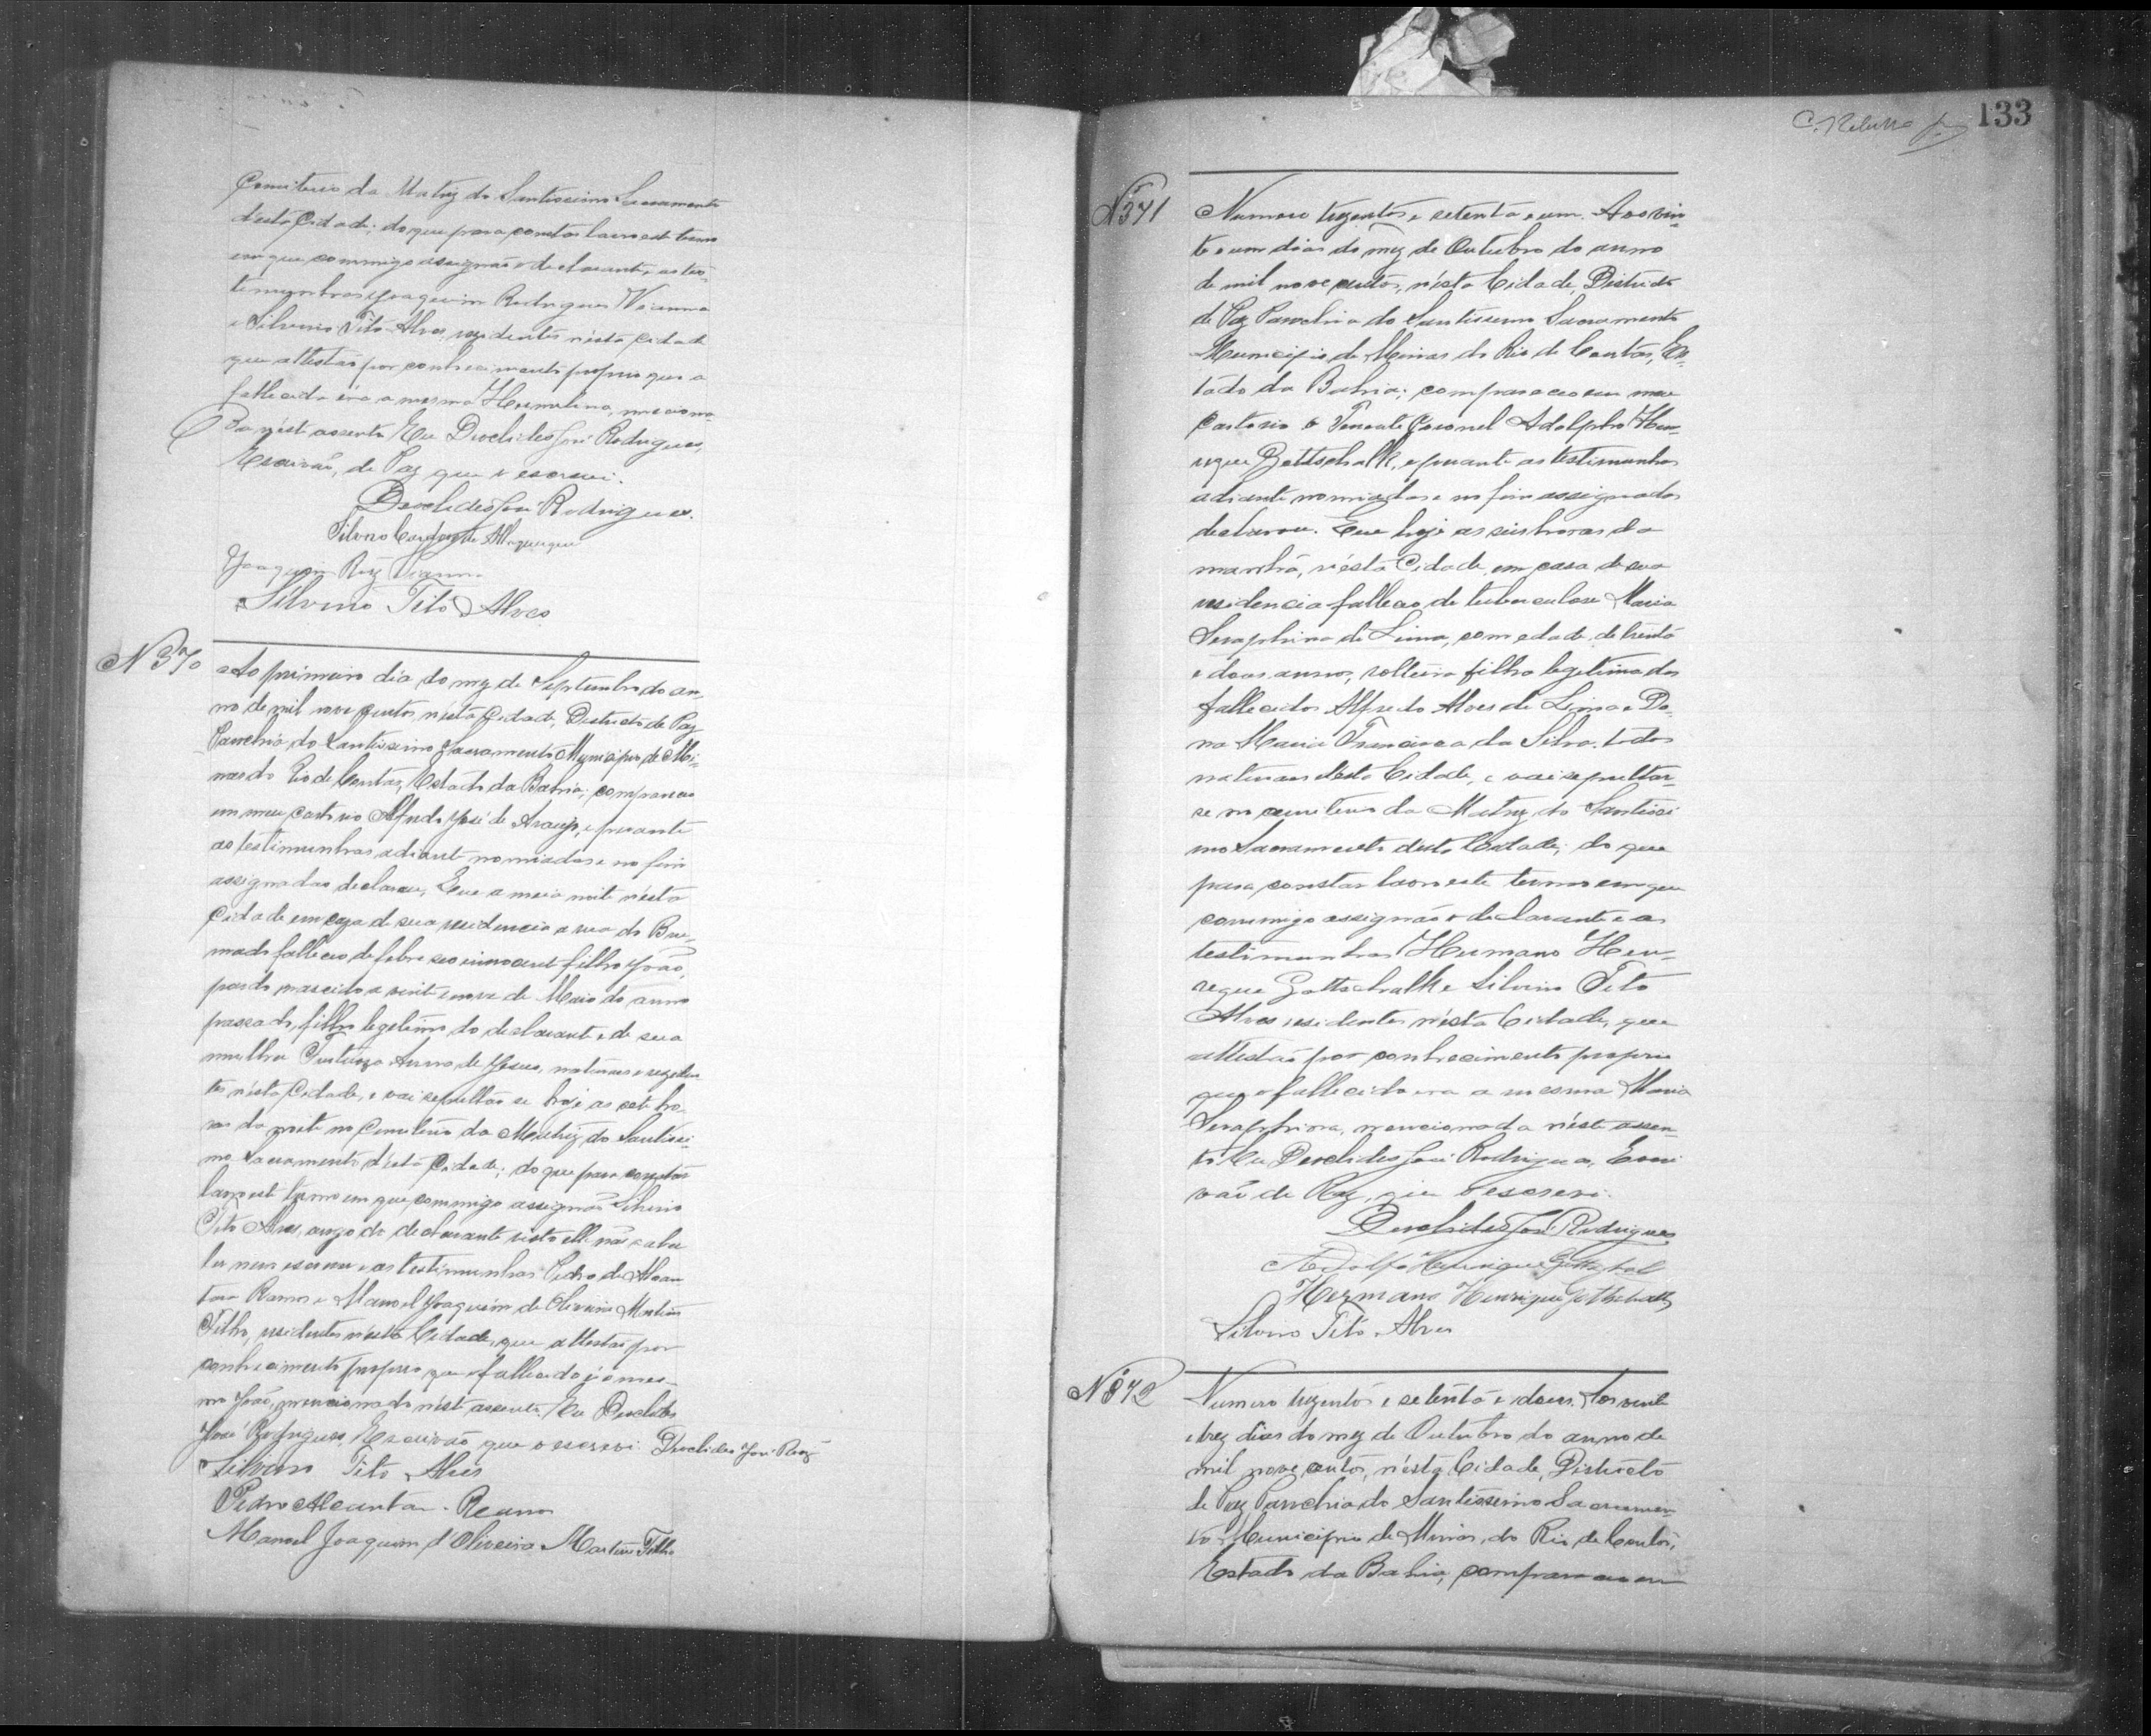 Cemiterio da Matriz do Santissimo Sacramento
d'esta Cidade; do que para constar lavro este termo
em que commigo assignão o declarante, as tes-
temunhas Joaquim Rodrigues Vianna
e Silvino Tito Alves, residentes n'esta Cidade
que attestão por conhecimento proprio que a
fallecida éra a mesma Hermelina, menciona-
da n'este assento Eu Deoclides José Rodrigues,
Escrivão, de Paz que o escrevi.
Deoclides José Rodrigues.
Silvino Cardoso de Albuquerque
Joaquim Roiz Vianna
Silvino Tito Alves
N 370
Ao primeiro dia do mez de Septembro do an-
no de mil nove centos, n'esta Cidade, Districto de Paz
Parochia do Santissimo Sacramento Municipio de Mi-
nas do Rio de Contas, Estado da Bahia; compareceo
em meu cartorio Alfredo José de Araujo, e perante
as testimunhas adiante nomiadas e no fim
assignadas declarou, Que a meia noite n'esta
Cidade em caza de sua residencia a rua do Bru-
mado falleceo de febre seo innocente filho João,
pardo nascido a vinte e nove de Maio do anno
passado, filho legitimo do declarante e de sua
mulher Anna de Jesus, naturaes e reziden-
tes n'esta Cidade, e vai sepultar se hoje as sete ho-
ras da noite no Cemiterio da Matriz do Santissi-
mo Sacramento d'esta Cidade; do que para constar
lavro este termo em que commigo assignão Silvino
Tito Alves, arogo do declarante visto elle não saber
ler nem escrever e as testimunhas Pedro de Alcan-
tara Ramos e Manoel Joaquim de Oliveira Martins
Filho, residentes n'esta Cidade, que attestão por
conhecimento proprio que o fallecido é o mes-
mo João, mencionado n'este assento, Eu Deoclides
José Rodrigues, Escrivão que o escrevi. Deoclides José Roiz
Silvino Tito Alves
Pedro Alcantara Ramos
Manoel Joaquim d'Oliveira Martins Filho
133
N 371
Numero trezentos e setenta e um. Aos vin-
te e um dias do mez de Outubro do anno
de mil nove centos, n'esta Cidade, Districto
de Paz Parochia do Santissimo Sacramento
Municipio de Minas do Rio de Contas, Es-
tado da Bahia; compareceo em meu
Cartorio o Tenente Coronel Adolpho Hen-
rique Gottschalk, e perante as testimunhas
adiante nomiadas e no fim assignadas
declarou. Que hoje as seis horas da
manhã, n'esta Cidade, em casa de sua
residencia falleceo de tuberculose Maria
Seraphina de Lima, com edade de trinta
e dous annos, solteira filha legitima dos
fallecidos Alfredo Alves de Lima e Do-
na Maria Francisca da Silva, todos
naturaes d'esta Cidade, e vai sepultar-
se no cemiterio da Matriz do Santissi
mo Sacramento desta Cidade; do que
para constar lavro este termo em que
commigo assignão o declarante e as
testimunhas Hermano Hen-
rique Gottschalk e Silvino Tito
Alves residentes n'esta Cidade, que
attestão por conhecimento proprio
que a fallecida era a mesma Maria
Seraphina, mencionada n'este assen-
to Eu Deoclides José Rodrigues, Escri
vão de Paz, que o escrevi.
Deoclides José Rodrigues
Adolfo Henrique Gottschalk
Hermano Henrique Gottschalk
Silvino Tito Alves
N 372
Numero trezentos e setenta e dous. Aos vinte
e trez dias do mez de Outubro do anno de
mil nove centos, n'esta Cidade, Districto
de Paz Parochia do Santissimo Sacramen-
to Municipio de Minas do Rio de Contas,
Estado da Bahia, compareceo em